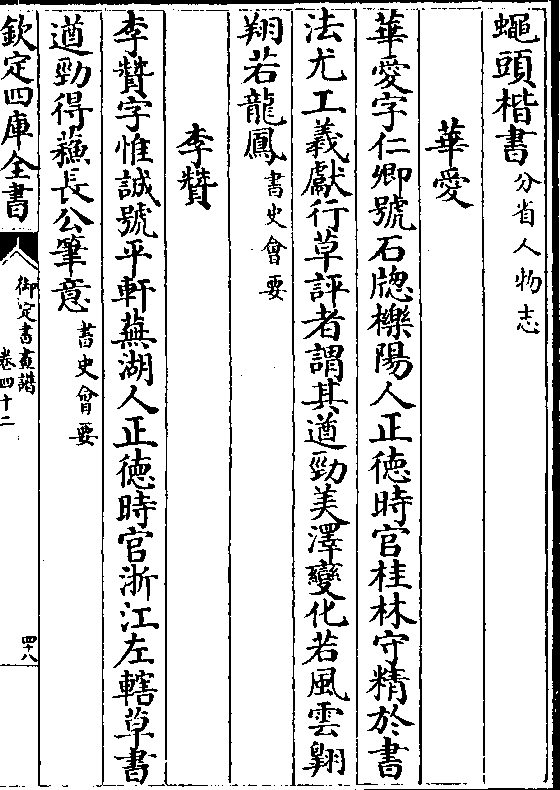 蠅頭楷書分省人物志
華愛
華愛字仁卿號石牕櫟陽人正德時官桂林守精於書
法尤工義獻行草評者謂其遒勁美澤變化若風雲翺
翔若龍鳳書史會要
李贊
李贊字惟誠號平軒蕪湖人正德時官浙江左轄草書
遒勁得蘓長公筆意書史會要
欽定四庫全書
御定書畫譜
卷四十二
四十八